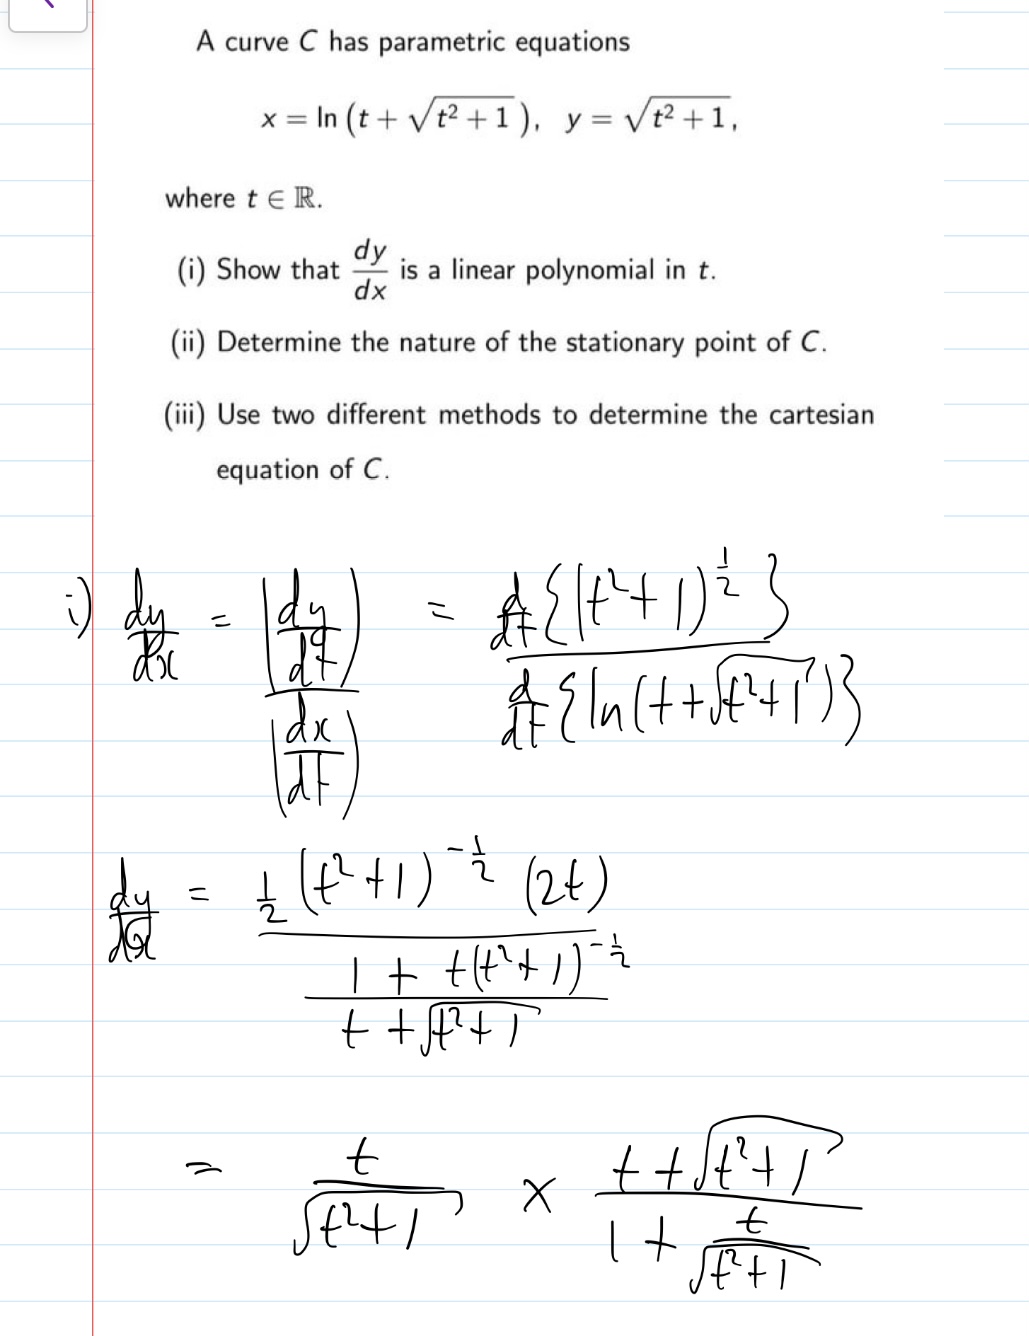 A curve C has parametric equations
x = ln (t + √(t² + 1)), y = √(t² + 1),
where t ∈ ℝ.
(i) Show that dy/dx is a linear polynomial in t.
(ii) Determine the nature of the stationary point of C.
(iii) Use two different methods to determine the cartesian
equation of C.
i) dy/dx = (dy/dt)/(dx/dt) = d/dt{(t²+1)^(1/2)} / d/dt{ln(t+√(t²+1))}
dy/dx = (1/2 (t²+1)^(-1/2) (2t)) / ((1 + t(t²+1)^(-1/2))/(t + √(t²+1)))
= t/√(t²+1) × (t + √(t²+1))/(1 + t/√(t²+1))